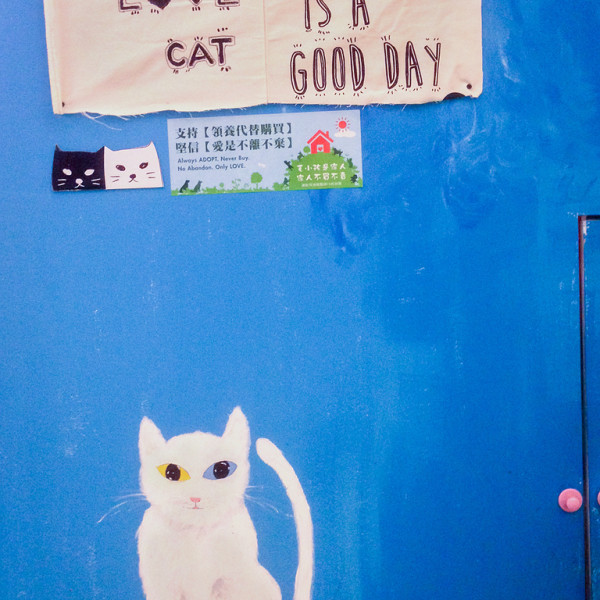 LOVE
CAT
IS A
GOOD DAY
支持【領養代替購買】
堅信【愛是不離不棄】
Always ADOPT. Never Buy.
No Abandon. Only LOVE.